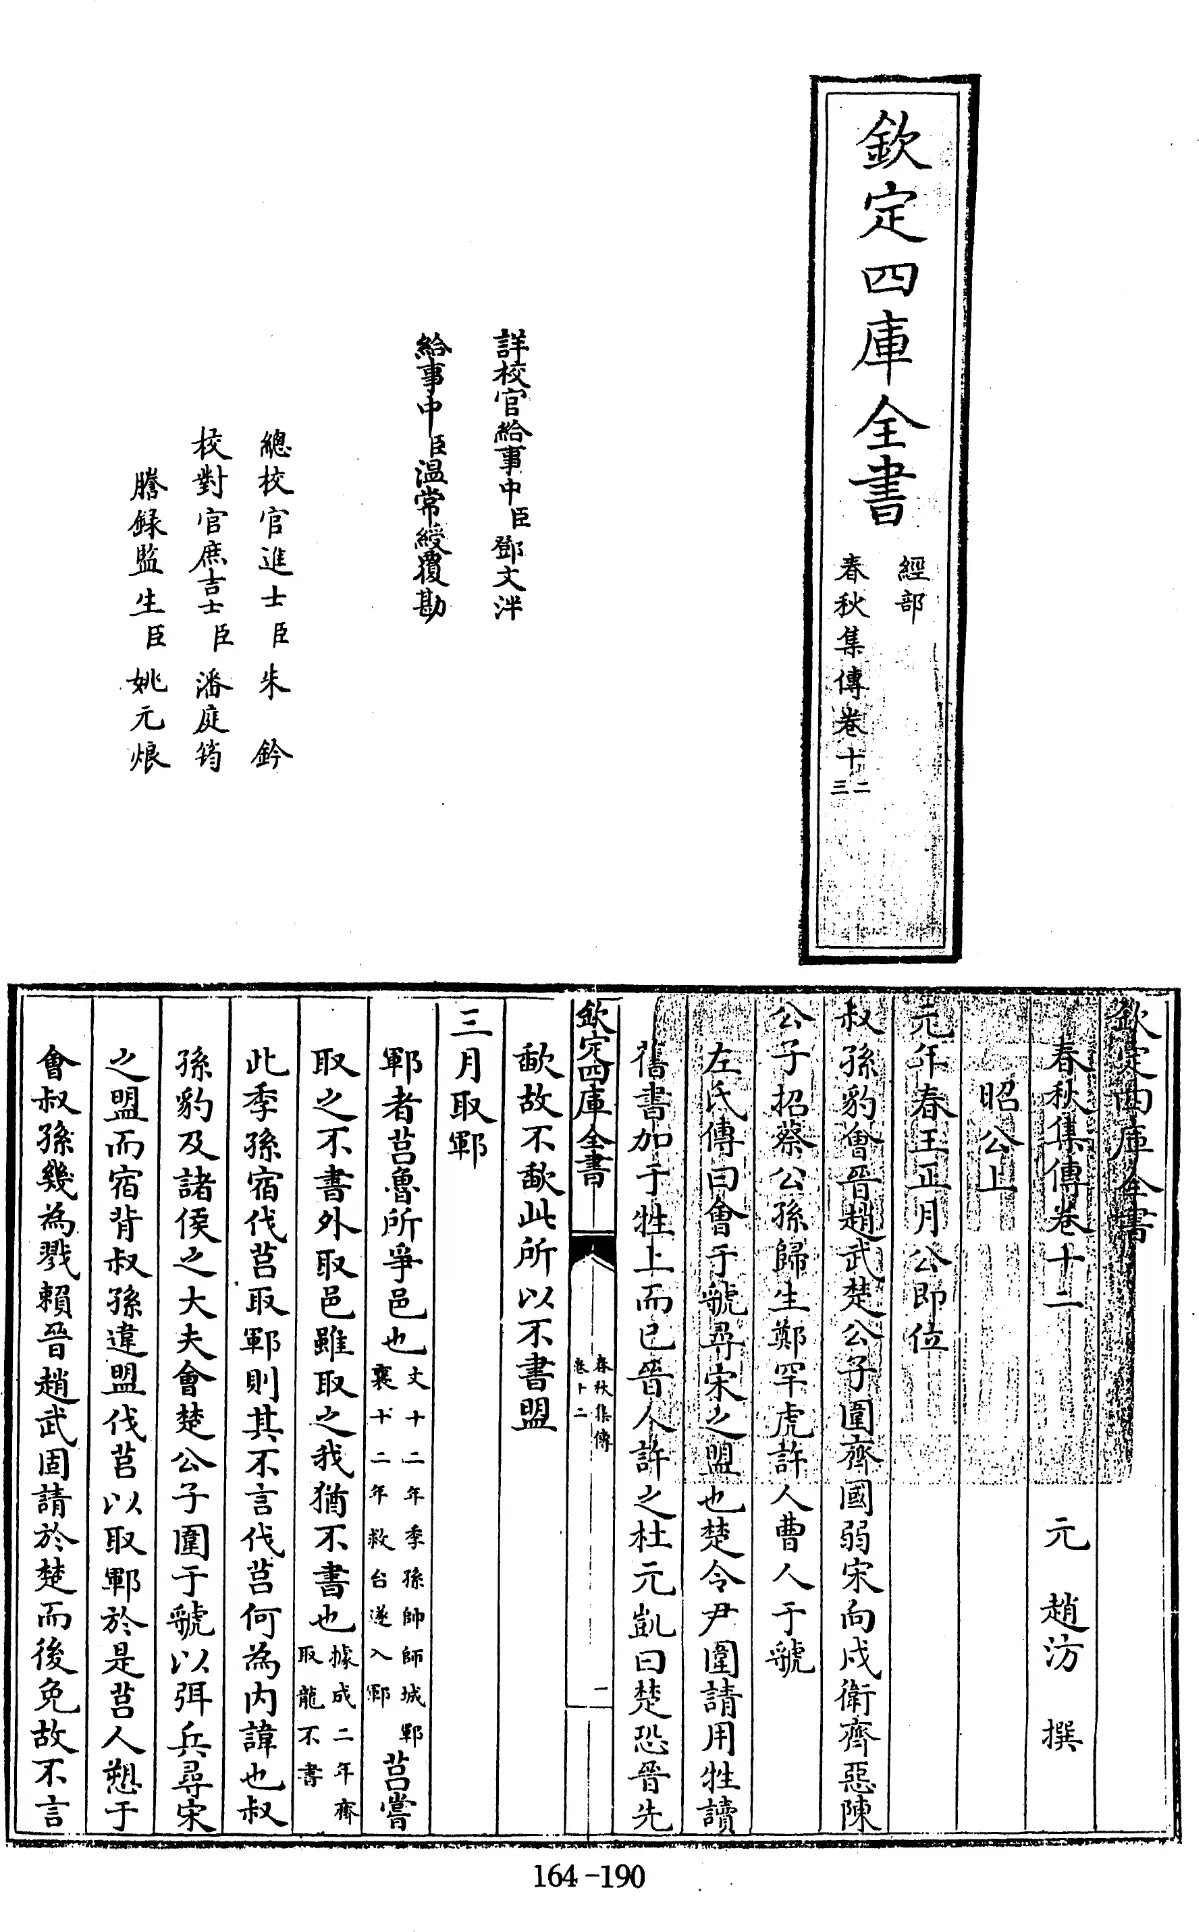 欽定四庫全書
經部
春秋集傳卷十二
三
詳校官給事中臣鄧文泮
給事中臣溫常綬覆勘
總校官進士臣朱鈐
校對官庶吉士臣潘庭筠
謄錄監生臣姚元烺
欽定四庫全書
春秋集傳卷十二
元 趙汸 撰
昭公上
元年春王正月公即位
叔孫豹會晉趙武楚公子圍齊國弱宋向戌衛齊惡陳
公子招蔡公孫歸生鄭罕虎許人曹人于虢
左氏傳曰會于虢尋宋之盟也楚令尹圍請用牲讀
舊書加于牲上而已晉人許之杜元凱曰楚恐晉先
欽定四庫全書
春秋集傳
卷十二
一
歃故不歃此所以不書盟
三月取鄆
鄆者莒魯所爭邑也文十二年季孫師師城鄆襄十二年救台遂入鄆莒嘗
取之不書外取邑雖取之我猶不書也據成二年齊取龍不書
此季孫宿伐莒取鄆則其不言伐莒何為内諱也叔
孫豹及諸侯之大夫會楚公子圍于虢以弭兵尋宋
之盟而宿背叔孫違盟伐莒以取鄆於是莒人愬于
會叔孫幾為戮賴晉趙武固請於楚而後免故不言
164-190